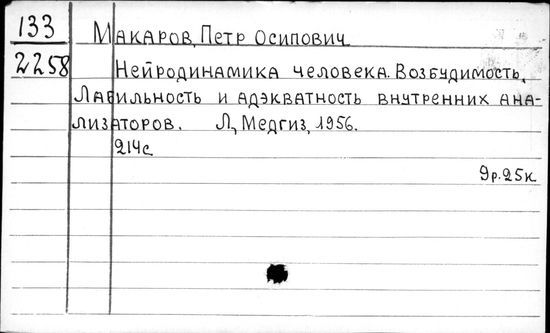 133
2258
Макаров, Петр Осипович
Нейродинамика человека. Возбудимость,
лабильность и адэкватность внутренних ана-
лизаторов. Л, Медгиз, 1956.
214с
9р.25к